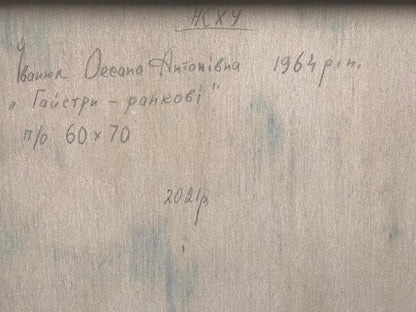 НСХУ
Оксана Антонівна 1964 р.н.
„Гайстри – ранкові"
п/о 60 х 70
2021р.